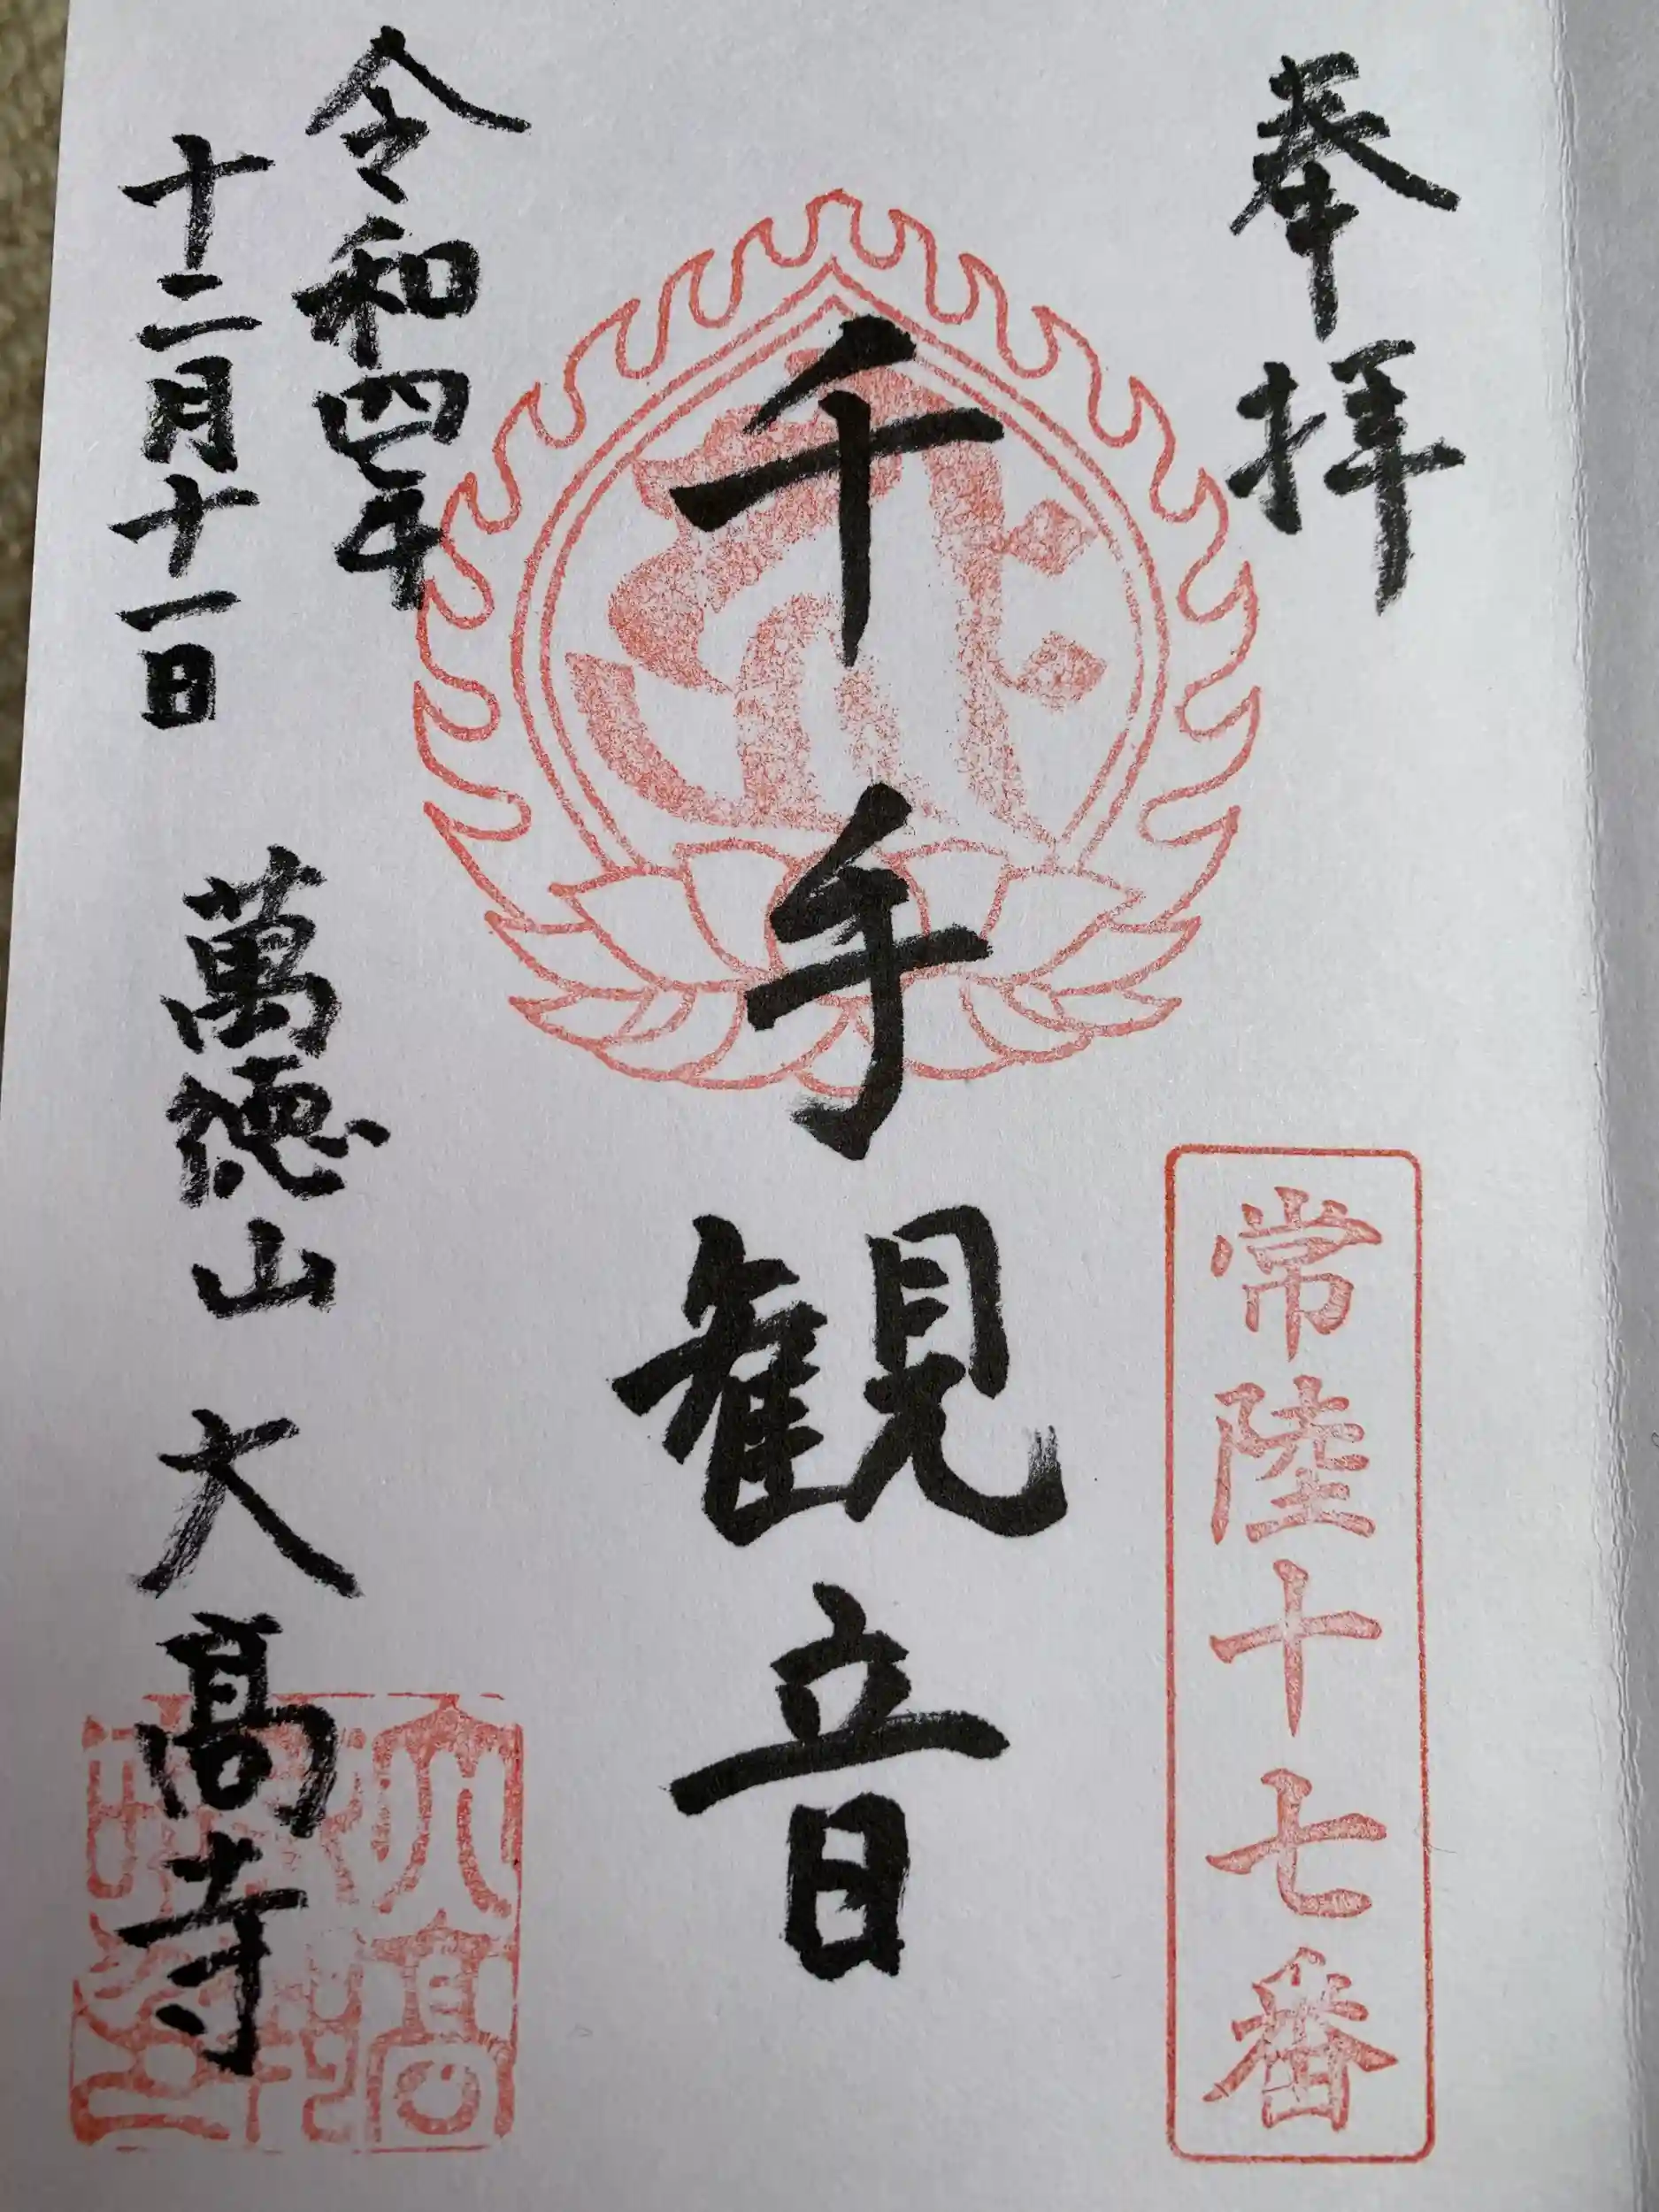 奉拝
常陸十七番
千手観音
令和四年
十二月十一日
萬徳山 大髙寺